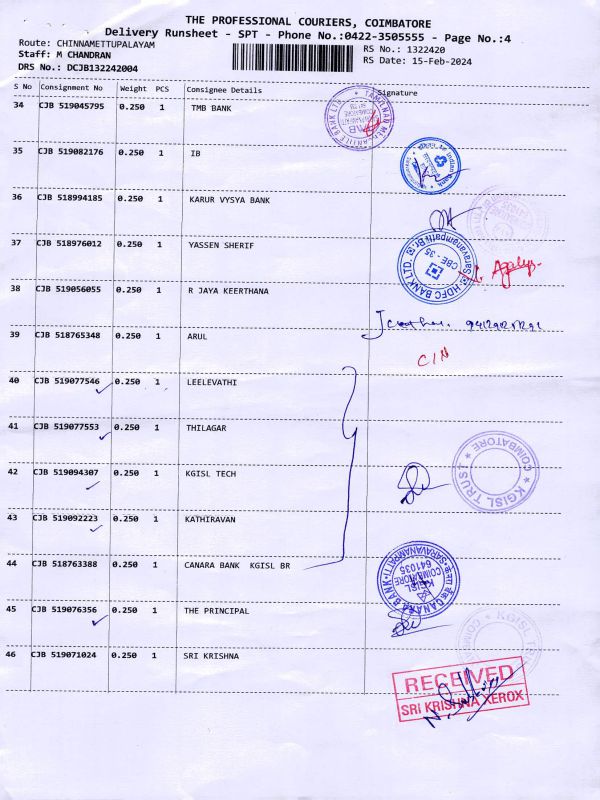 THE PROFESSIONAL COURIERS, COIMBATORE
Delivery Runsheet - SPT - Phone No.:0422-3505555 - Page No.:4
Route: CHINNAMETTUPALAYAM
Staff: M CHANDRAN
DRS No.: DCJB132242004
RS No.: 1322420
RS Date: 15-Feb-2024
S No Consignment No Weight PCS Consignee Details Signature
34 CJB 519045795 0.250 1 TMB BANK
35 CJB 519082176 0.250 1 IB
36 CJB 518994185 0.250 1 KARUR VYSYA BANK
37 CJB 518976012 0.250 1 YASSEN SHERIF
HDFC BANK LTD. Saravanampatti Br.
CBE - 35
38 CJB 519056055 0.250 1 R JAYA KEERTHANA
39 CJB 518765348 0.250 1 ARUL
C/N
40 CJB 519077546 0.250 1 LEELEVATHI
41 CJB 519077553 0.250 1 THILAGAR
42 CJB 519094307 0.250 1 KGISL TECH
KGISL TRUST ★ COIMBATORE ★
43 CJB 519092223 0.250 1 KATHIRAVAN
44 CJB 518763388 0.250 1 CANARA BANK KGISL BR
CANARA BANK SARAVANAMPATTI
KGISL
COIMBATORE
641035
45 CJB 519076356 0.250 1 THE PRINCIPAL
46 CJB 519071024 0.250 1 SRI KRISHNA
RECEIVED
SRI KRISHNA XEROX